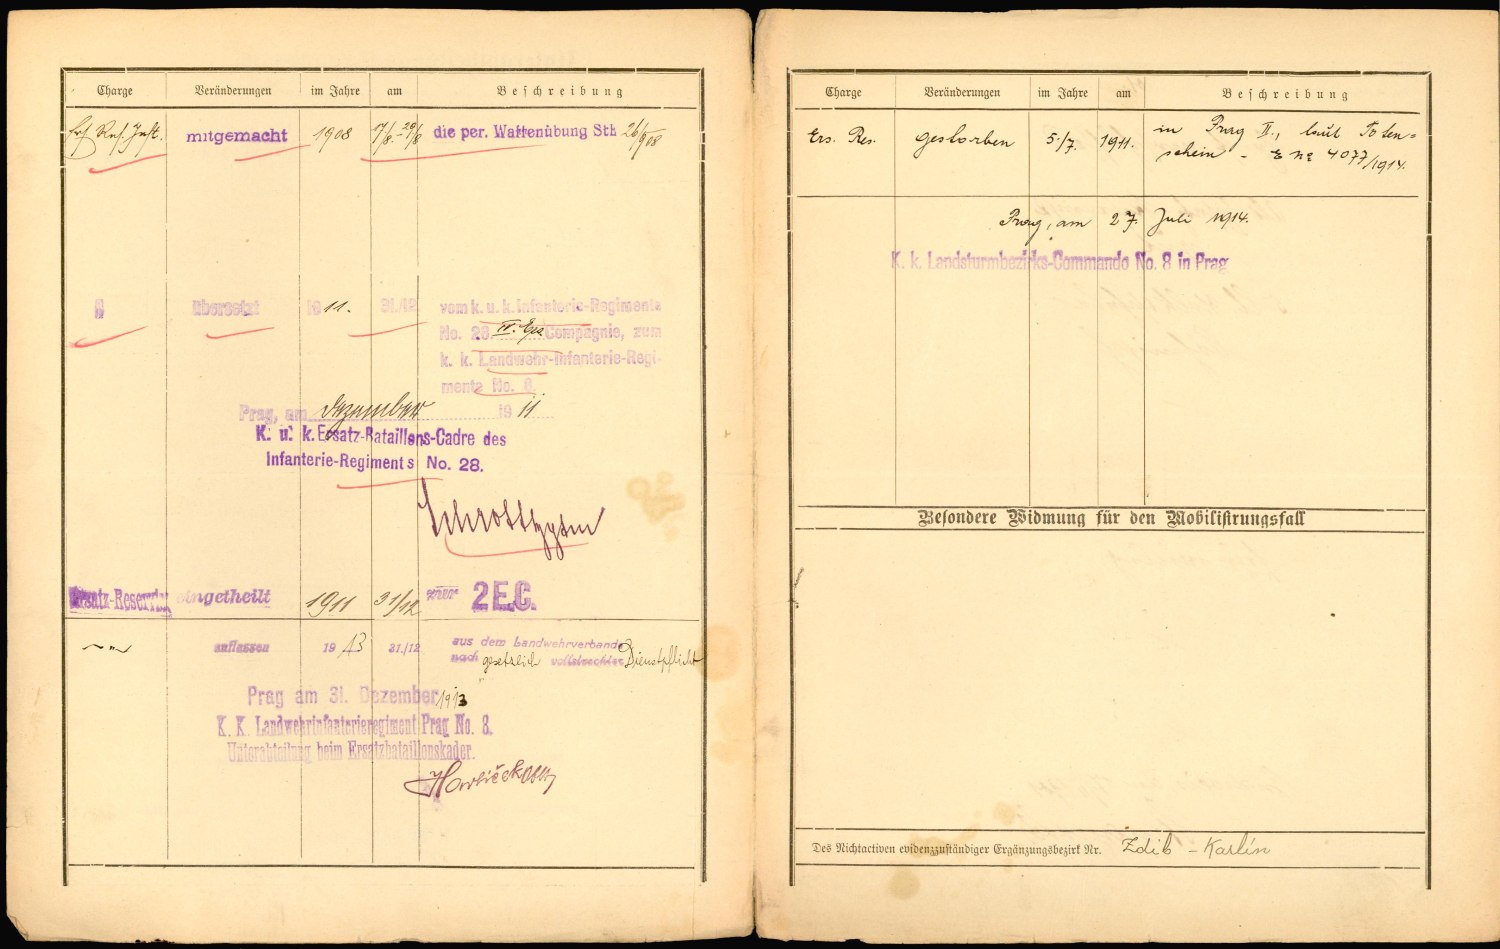 Charge Veränderungen im Jahre am Beschreibung
mitgemacht 1908 die per. Waffenübung
übersetzt 1911. 31./12. vom k. u. k. Infanterie-Regimente
No. 28. IV. Ers Compagnie, zum
k. k. Landwehr-Infanterie-Regi-
mente No. 8.
Prag, am Dezember 1911
K. u. k. Ersatz-Bataillons-Cadre des
Infanterie-Regiments No. 28.
Ersatz-Reservist eingetheilt 1911 31/12 2 E.C.
1913 31./12 aus dem Landwehrverbande
nach gesetzlich vollstreckter Dienstpflicht
Prag am 31. Dezember 1913
K. K. Landwehrinfanterieregiment Prag No. 8.
Unterabteilung beim Ersatzbataillonskader.
Charge Veränderungen im Jahre am Beschreibung
Ers. Res. gestorben 5./7. 1911. in Prag II., laut Toten-
schein - E No 4077/1914.
Prag, am 27. Juli 1914.
K. k. Landsturmbezirks-Commando No. 8 in Prag
Besondere Widmung für den Mobilisirungsfall
Des Nichtactiven evidenzzuständiger Ergänzungsbezirk Nr. Zdib - Karlín